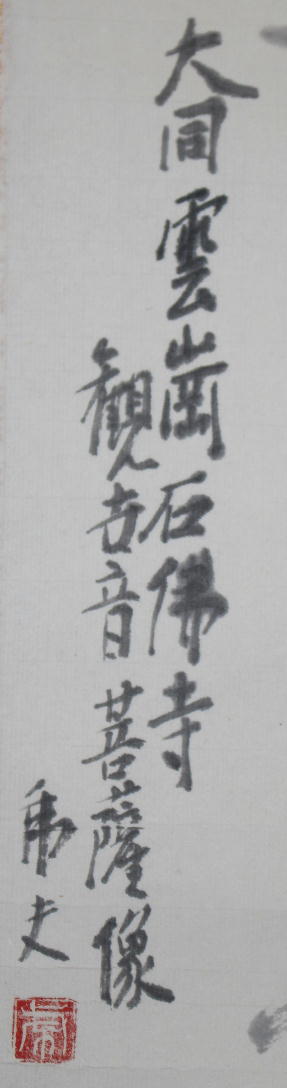 大同雲崗石佛寺
觀世音菩薩像
乕夫